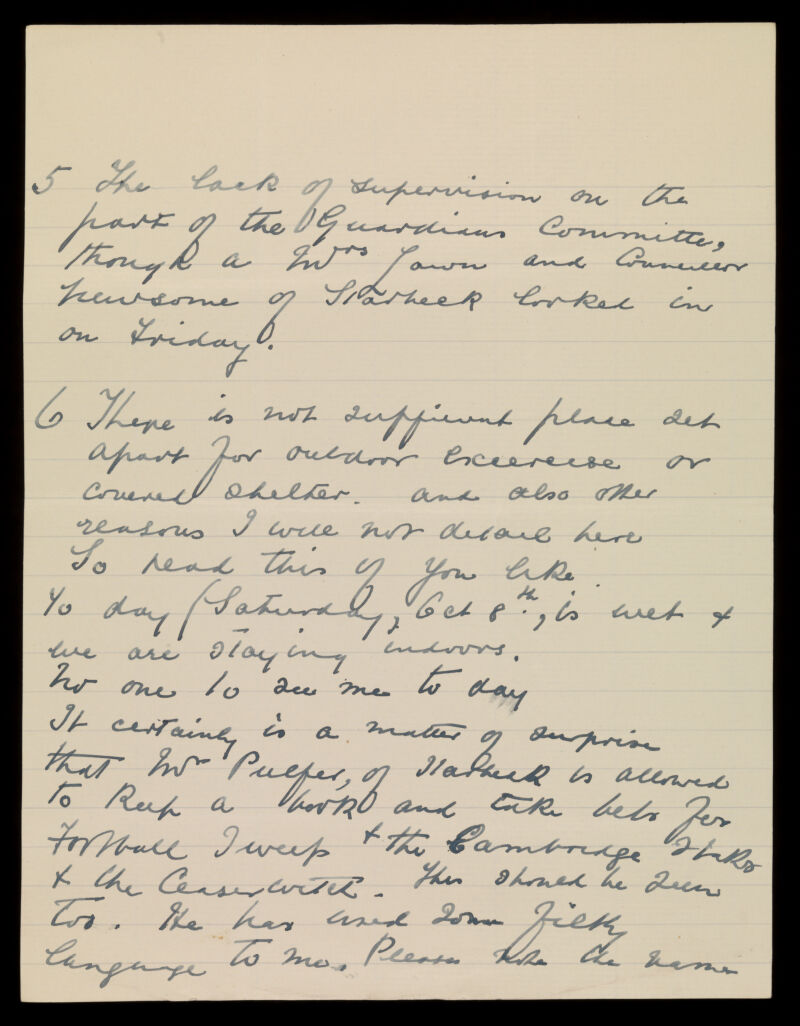 5 The lack of supervision on the
part of the Guardians Committee,
though a Mrs Town and Councillor
Newsome of Starbeck looked in
on Friday.
6 There is not suffient place set
apart for outdoor excerecise or
covered shelter. and also other
reasons I will not detail here
So read this if you like
To day (Saturday, Oct 8th, is wet &
we are staying indoors.
No one to see me to day
It certainly is a matter of surprise
that Mr Pulfer, of Starbeck is allowed
to keep a book and take bets for
Football Sweep & the Cambridge Stakes
& the Ceaserwitch. This should be seen
too. He has used some filthy
language to me. Please note the name